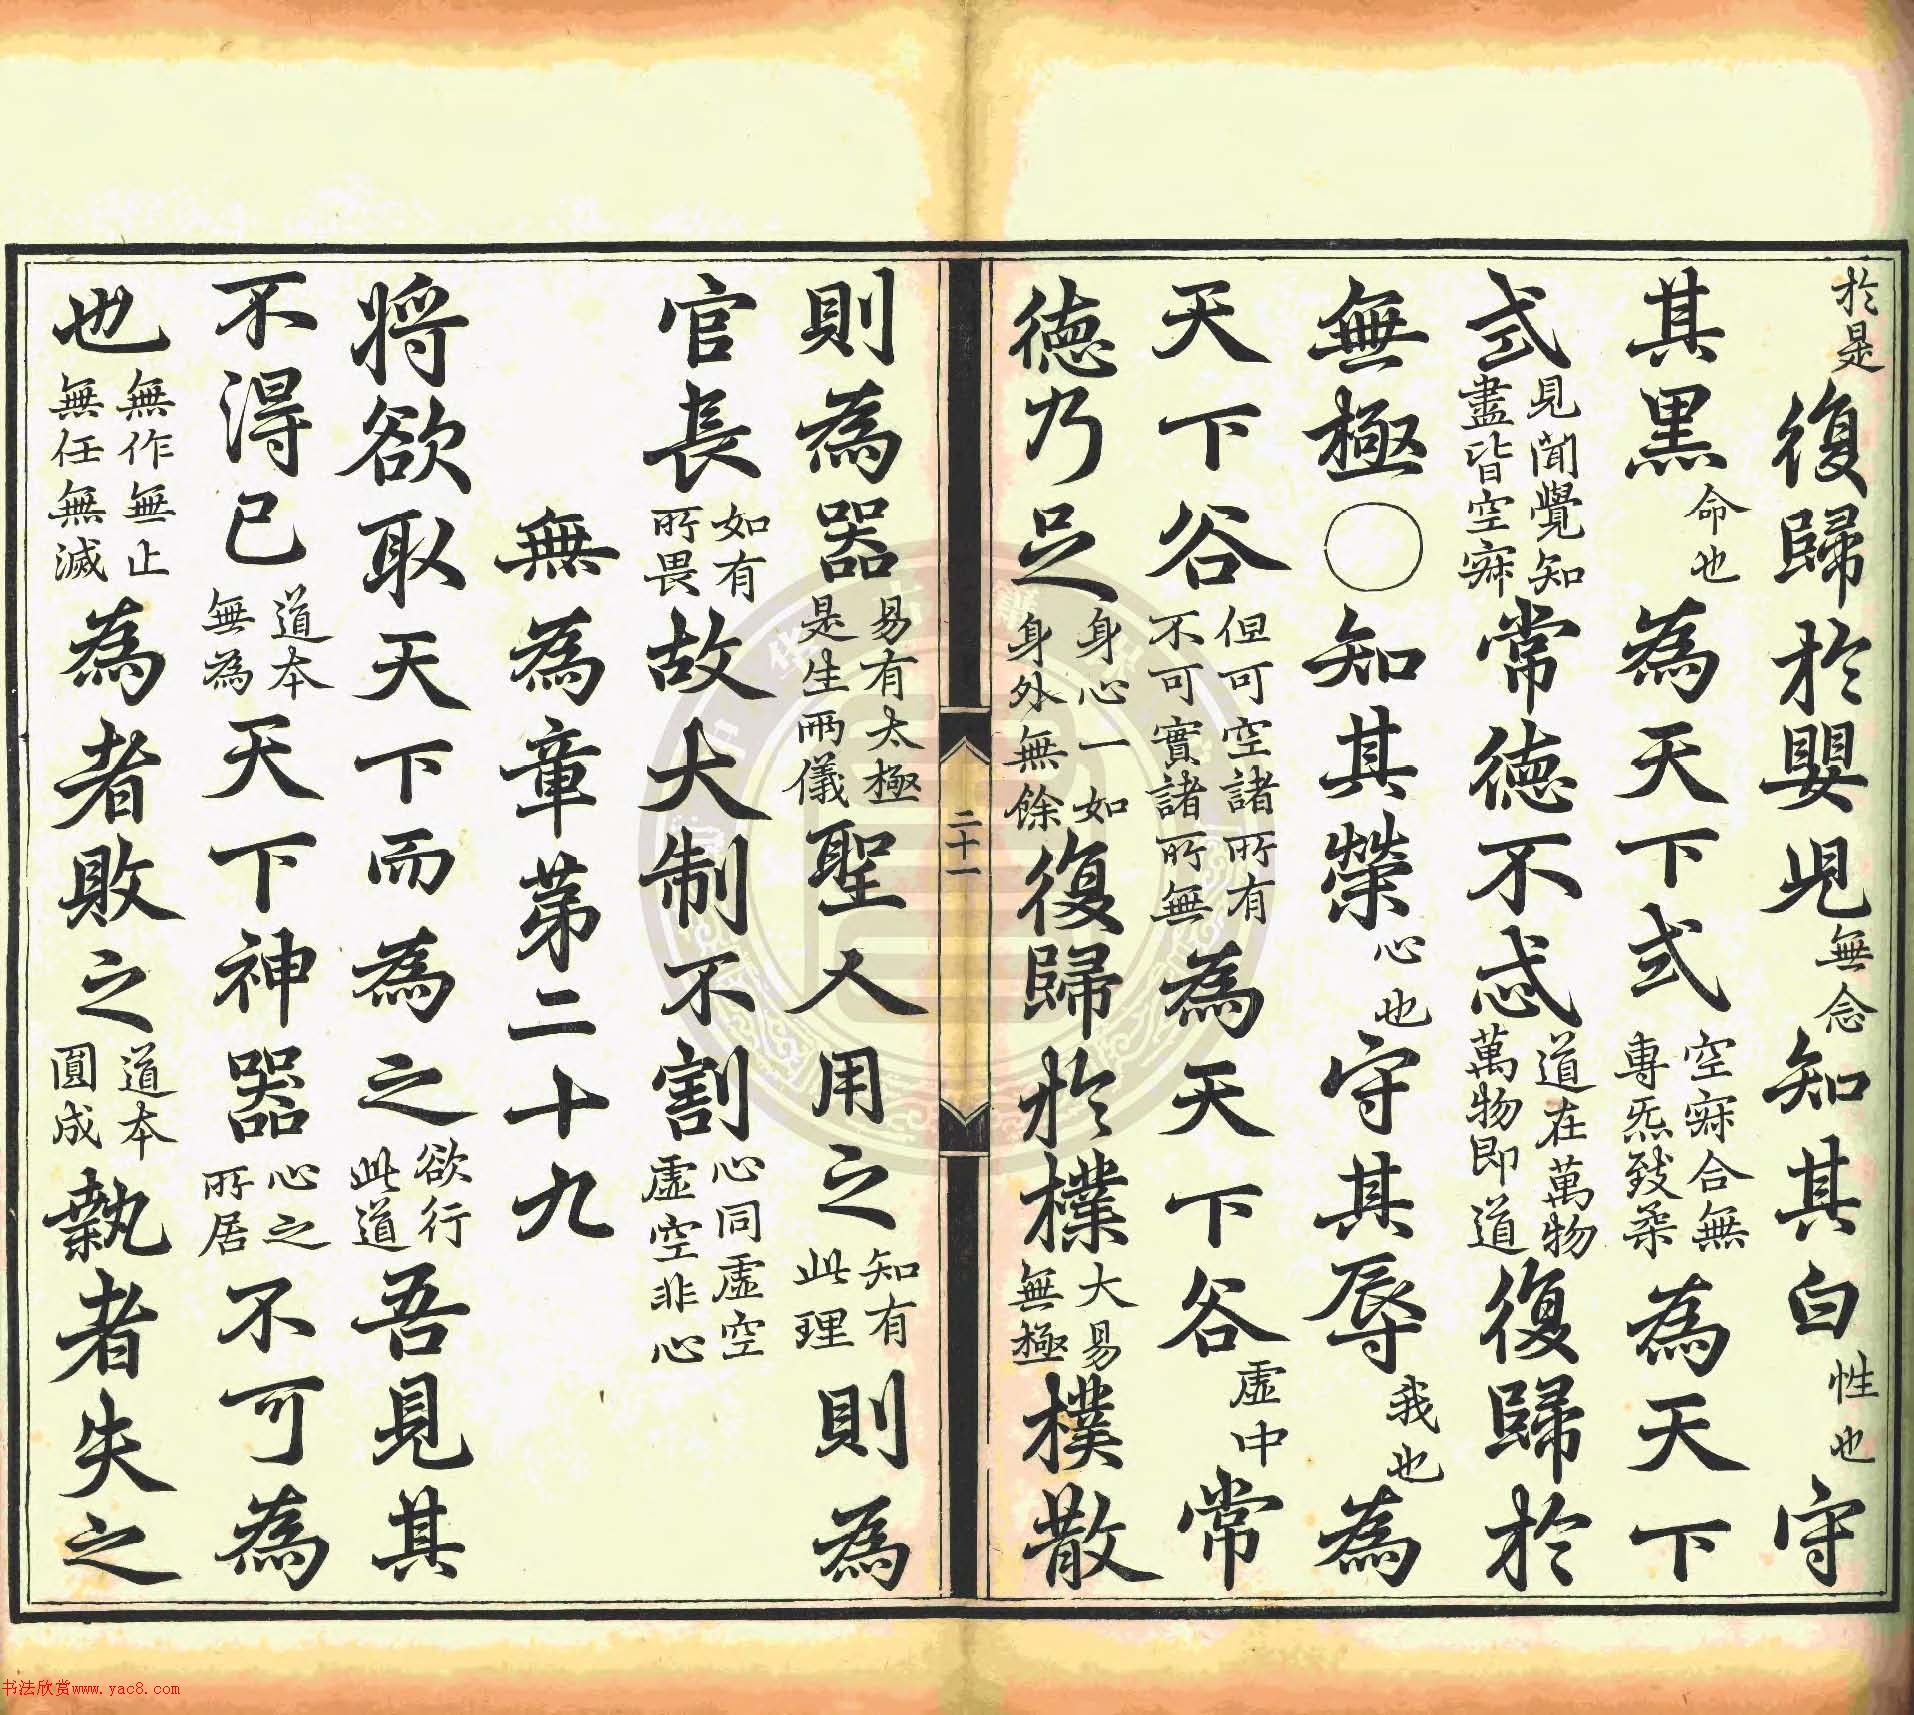 於是復歸於嬰児無念知其白性也守
其黒命也為天下式空寂合無專炁致柔為天下
式見聞覺知盡皆空寂常德不忒道在萬物萬物即道復歸於
無極○知其榮心也守其辱我也為
天下谷但可空諸所有不可實諸所無為天下谷虛中常
德乃足身心一如身外無餘復歸於樸大易無極樸散
二十一
則為器易有太極是生兩儀聖人用之知有此理則為
官長如有所畏故大制不割心同虛空虛空非心
無為章第二十九
將欲取天下而為之欲行此道吾見其
不得已道本無為天下神器心之所居不可為
也無作無止無任無滅為者敗之道本圓成執者失之
书法欣赏www.yac8.com